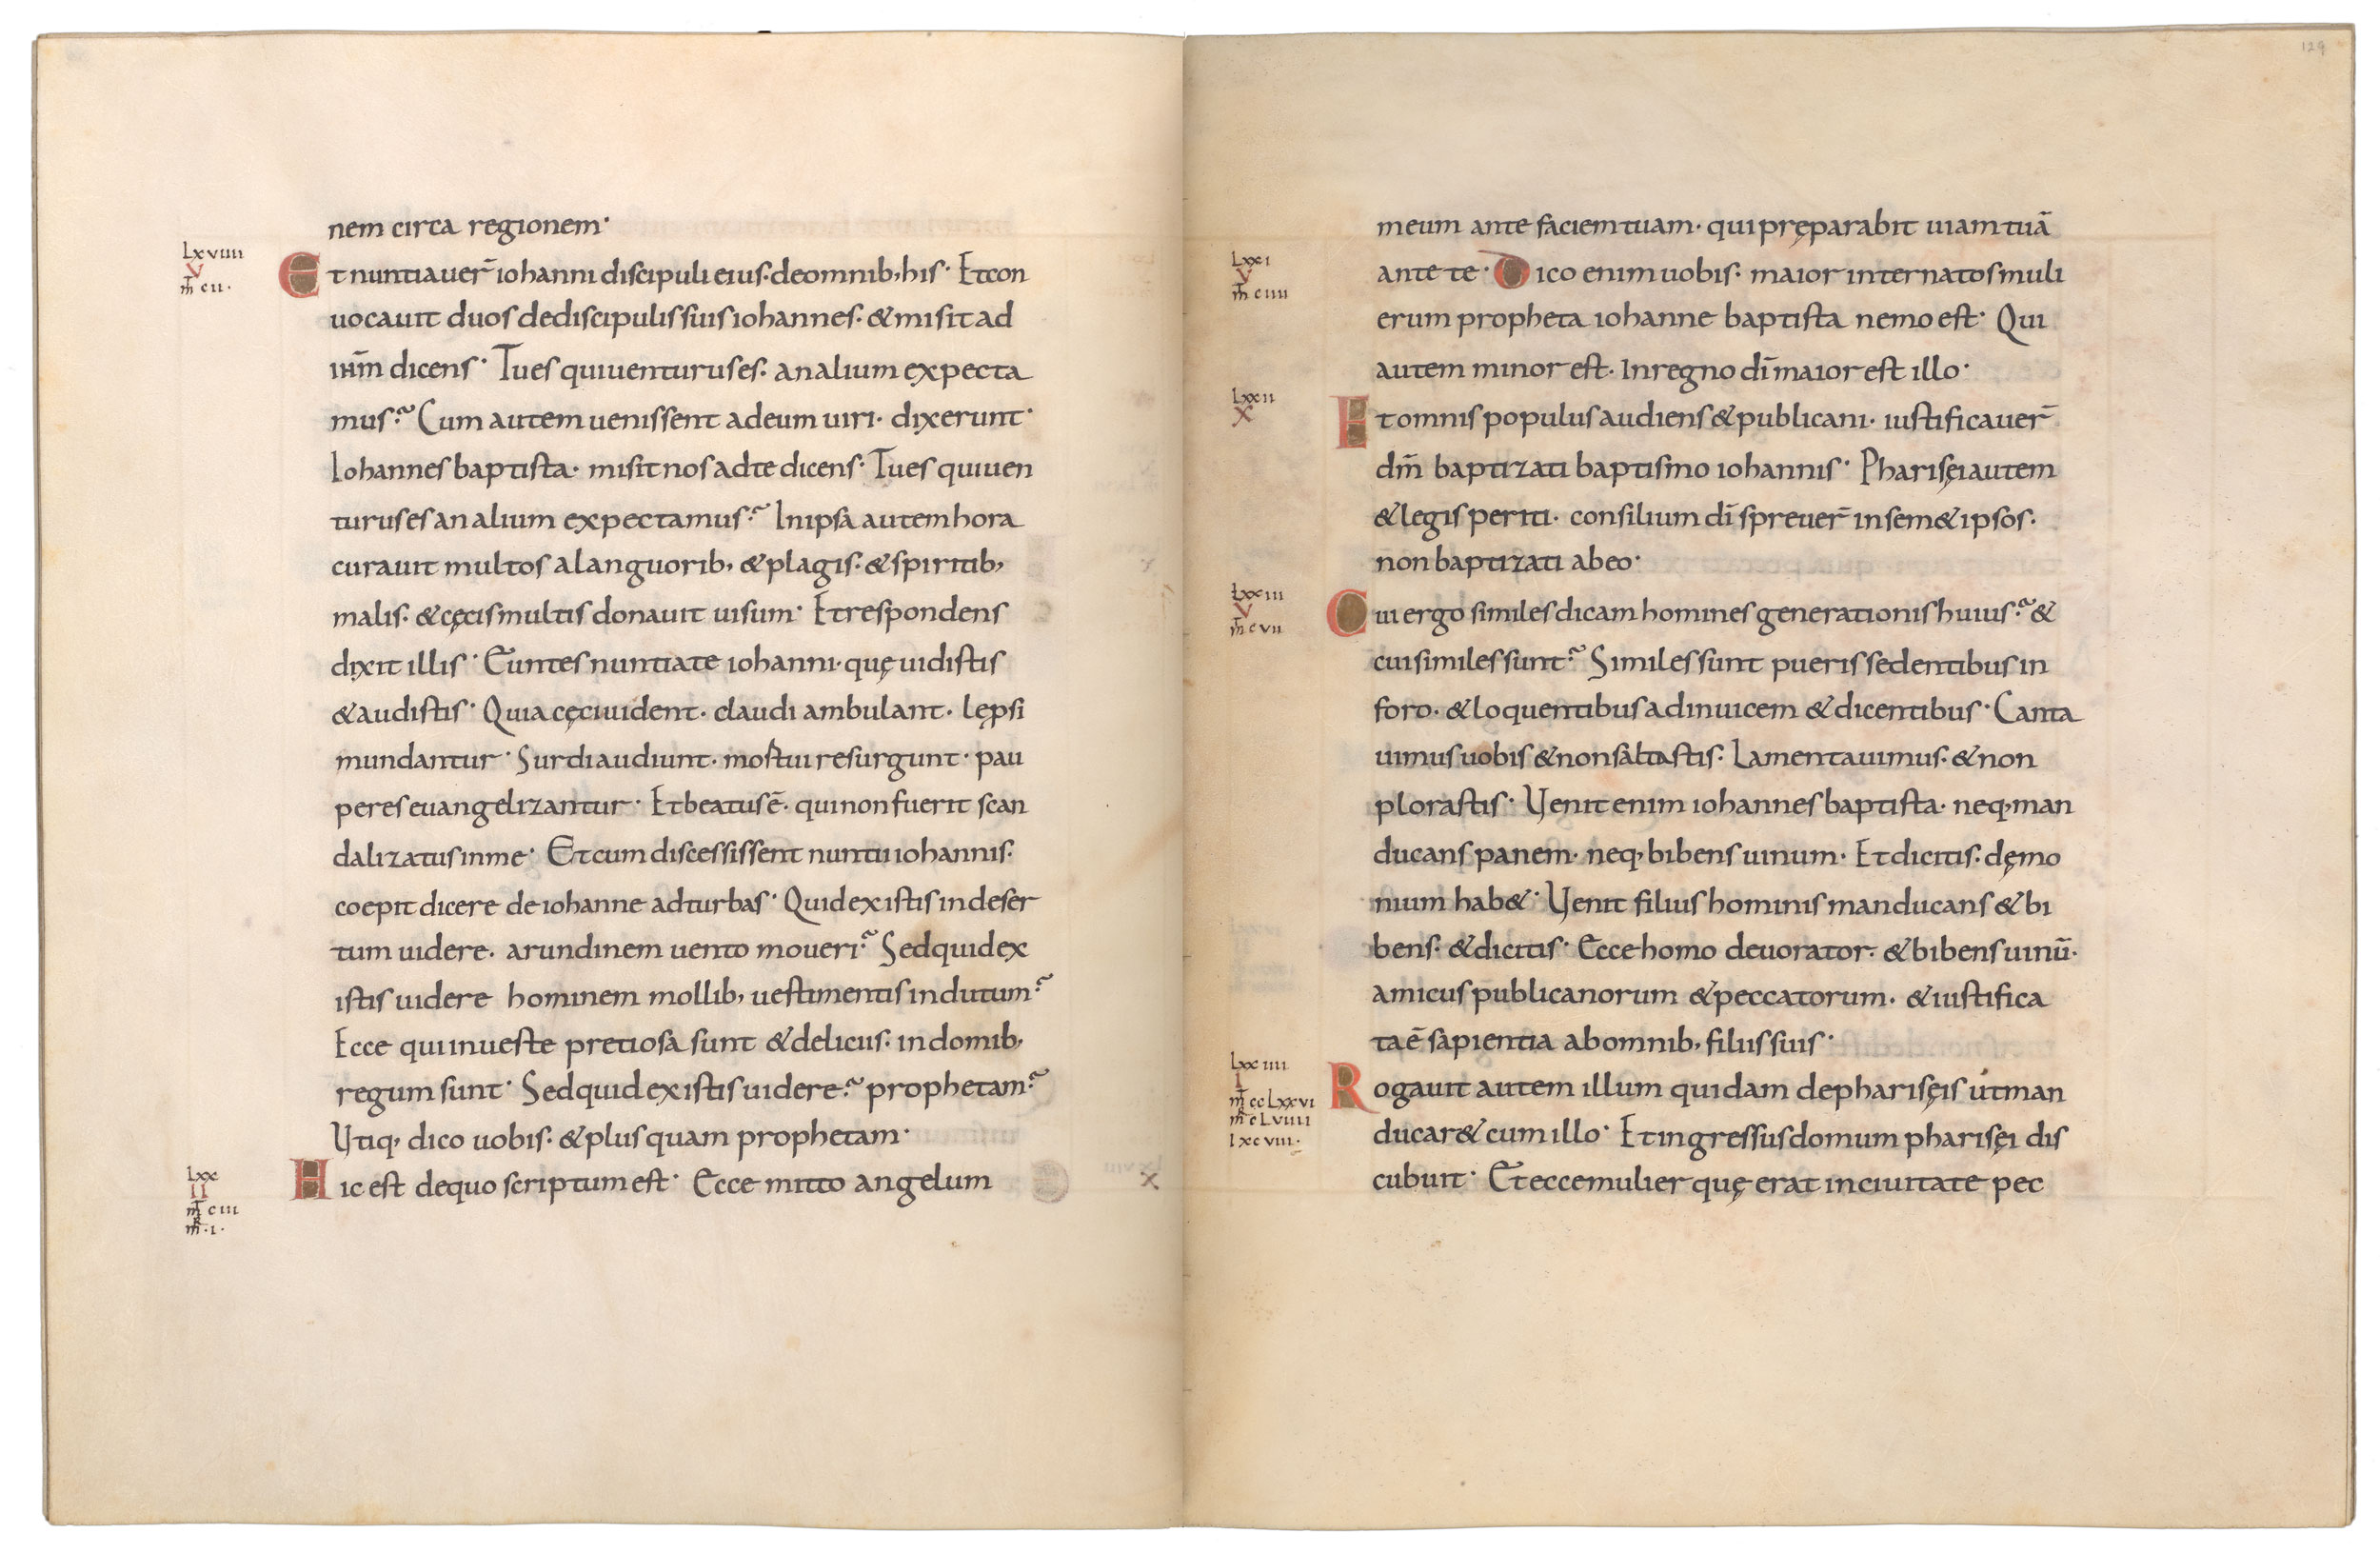 nem circa regionem·
Lxviiii
V
m̄ cii·
Et nuntiauer̄ iohanni discipuli eius· de omnib, his· Et con
uocauit duos de discipulis suis iohannes· & misit ad
ihm̄ dicens· Tu es qui uenturus es· an alium expecta
mus? Cum autem uenissent ad eum uiri· dixerunt·
Iohannes baptista· misit nos ad te dicens· Tu es qui uen
turus es an alium expectamus? In ipsa autem hora
curauit multos a languorib, & plagis· & spiritib,
malis· & cęcis multis donauit uisum· Et respondens
dixit illis· Euntes nuntiate iohanni· quę uidistis
& audistis· Quia cęci uident· claudi ambulant· lępsi
mundantur· Surdi audiunt· mortui resurgunt· pau
peres euangelizantur· Et beatus ē· qui non fuerit scan
dalizatus in me· Et cum discessissent nuntii iohannis·
coepit dicere de iohanne ad turbas· Quid existis in deser
tum uidere· arundinem uento moueri? Sed quid ex
istis uidere hominem mollib, uestimentis indutum?
Ecce qui in ueste pretiosa sunt & deliciis· in domib,
regum sunt· Sed quid existis uidere? prophetam?
Utiq, dico uobis· & plus quam prophetam·
Lxx
II
m̄ ciii
m̄r·i·
Hic est de quo scriptum est· Ecce mitto angelum
129
meum ante faciem tuam· qui pręparabit uiam tuā
Lxxi
V
m̄ ciiii
ante te· Dico enim uobis· maior inter natos muli
erum propheta iohanne baptista nemo est· Qui
autem minor est· In regno dī maior est illo·
Lxxii
X
Et omnis populus audiens & publicani· iustificauer̄
dm̄ baptizati baptismo iohannis· Pharisęi autem
& legis periti· consilium dī spreuer̄ in sem&ipsos·
non baptizati ab eo·
Lxxiii
V
m̄ cvii
Cui ergo similes dicam homines generationis huius? &
cui similes sunt? Similes sunt pueris sedentibus in
foro· & loquentibus ad inuicem & dicentibus· Canta
uimus uobis & non saltastis· Lamentauimus· & non
plorastis· Uenit enim iohannes baptista· neq, man
ducans panem· neq, bibens uinum· Et dicitis· dęmo
nium hab&· Uenit filius hominis manducans & bi
bens· & dicitis· Ecce homo deuorator· & bibens uinū·
amicus publicanorum & peccatorum· & iustifica
ta ē sapientia ab omnib, filiis suis·
Lxxiiii
I
m̄ ccLxxvi
m̄r cLviiii
Lxcviii·
Rogauit autem illum quidam de pharisęis út man
ducar& cum illo· Et ingressus domum pharisęi dis
cubuit· Et ecce mulier quę erat in ciuitate pec